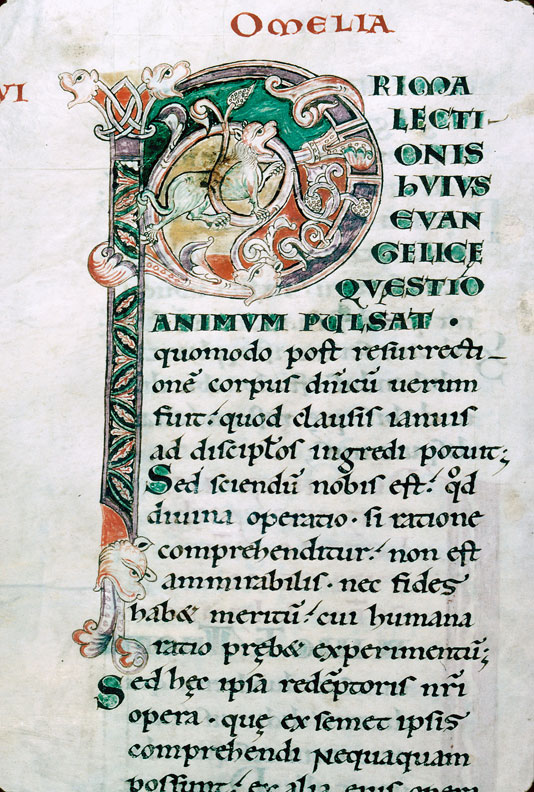 OMELIA
VI
PRIMA
LECTI-
ONIS
hVIVS
EVAN
GELICE
QVESTIO
ANIMVM PVLSAT.
quomodo post resurrecti-
onē corpus dn̄icū uerum
fuit. quod clausis ianuis
ad discipl̄os ingredi potuit;
Sed sciendū nobis est. qd̄
diuina operatio. si ratione
comprehenditur. non est
ammirabilis. nec fides
habet meritū. cui humana
ratio prębet experimentū;
Sed hęc ipsa redēptoris nr̄i
opera. quę ex semet ipsis
comprehendi Nequaquam
possunt. ex alia eius opem